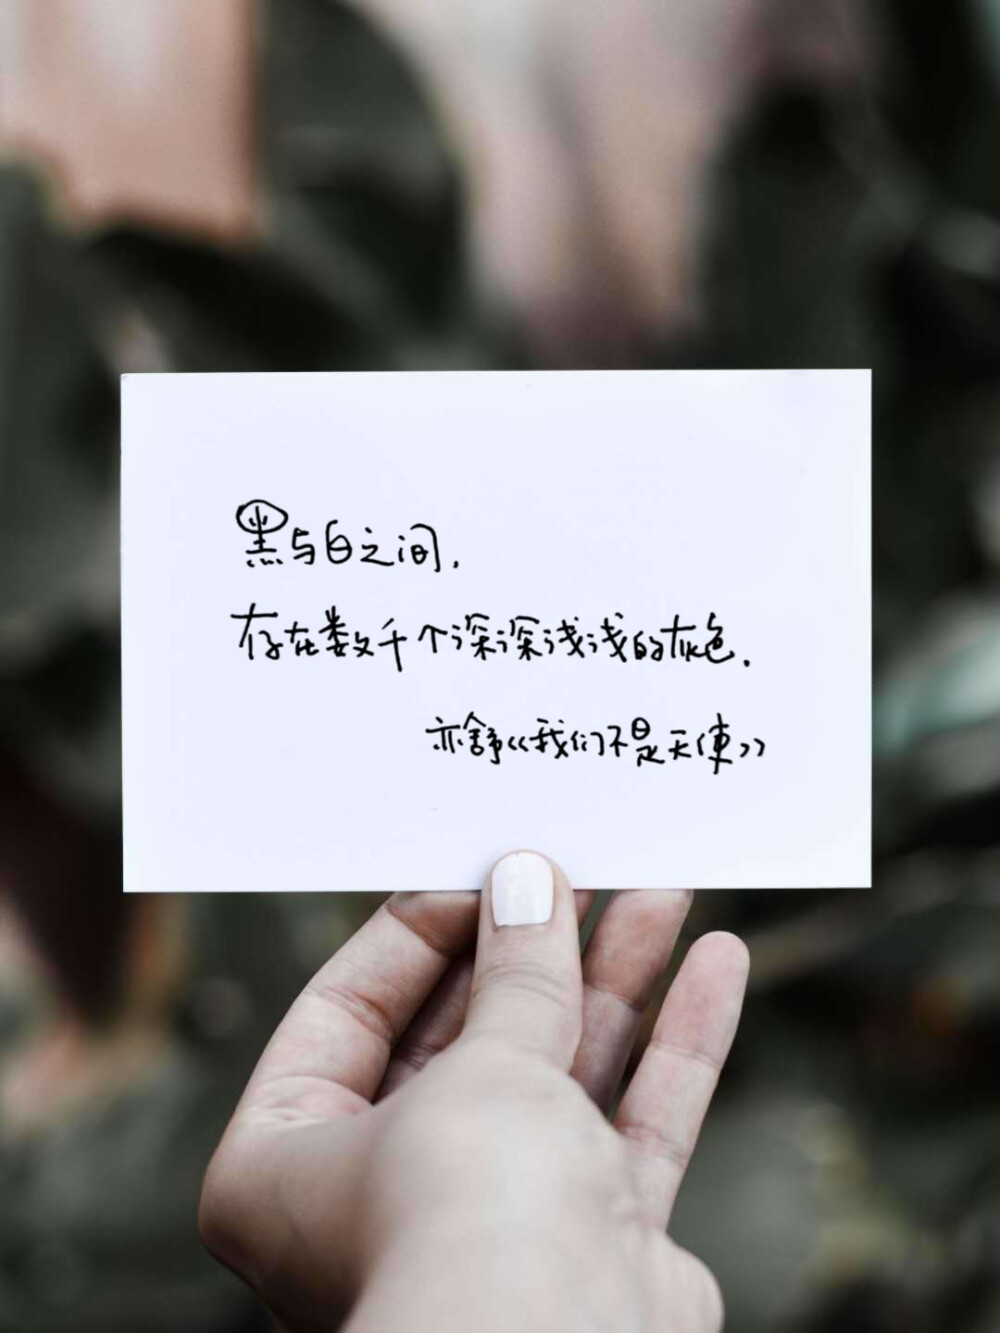 黑与白之间.
存在数千个深深浅浅的灰色.
亦舒《我们不是天使》